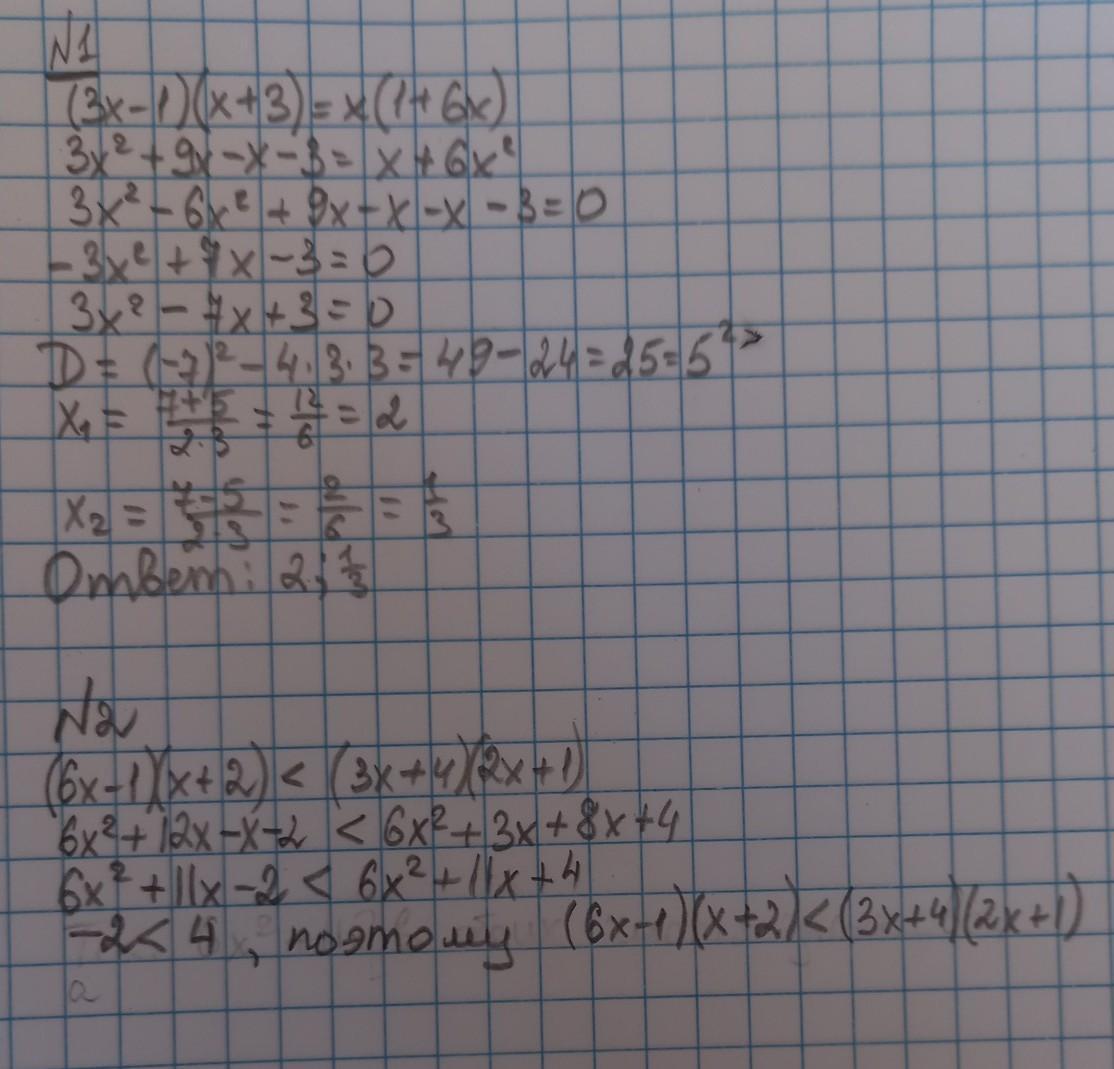 N1
(3x-1)(x+3)=x(1+6x)
3x²+9x-x-3=x+6x²
3x²-6x²+9x-x-x-3=0
-3x²+7x-3=0
3x²-7x+3=0
D=(-7)²-4·3·3=49-24=25=5²>
x₁=\frac{7+5}{2·3}=\frac{12}{6}=2
x₂=\frac{7-5}{2·3}=\frac{2}{6}=\frac{1}{3}
Ответ: 2; \frac{1}{3}
N2
(6x-1)(x+2)<(3x+4)(2x+1)
6x²+12x-x-2<6x²+3x+8x+4
6x²+11x-2<6x²+11x+4
-2<4, поэтому (6x-1)(x+2)<(3x+4)(2x+1)
a